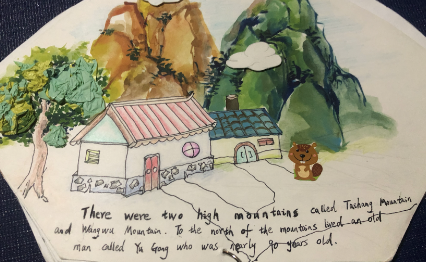 There were two high mountains called Taihang Mountain
and Wangwu Mountain. To the north of the mountains lived an old
man called Yu Gong who was nearly 90 years old.